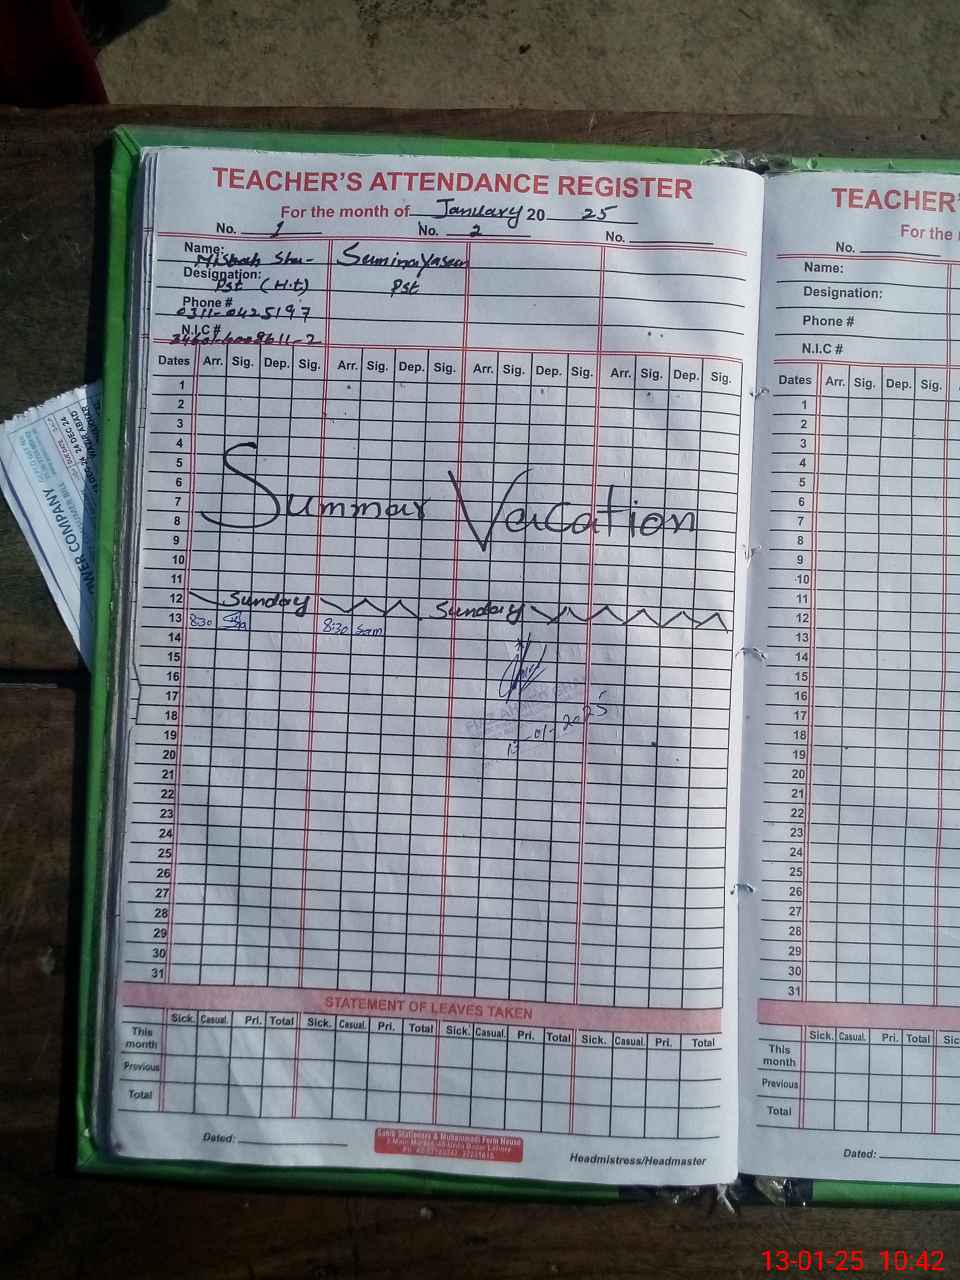 TEACHER'S ATTENDANCE REGISTER
For the month of January 20 25
No. 1 No. 2 No.
Name: Misbah Suminayasen
Designation: Pst (H.t) Pst
Phone # 0311-0425197
N.I.C #
Dates Arr. Sig. Dep. Sig. Arr. Sig. Dep. Sig. Arr. Sig. Dep. Sig. Arr. Sig. Dep. Sig.
1
2
3
4
5
6
7
8
Summar Vacation
9
10
11
12 Sunday Sunday
13 8:30 8:30 Sam
14
15
16
17
18
01-2025
19
20
21
22
23
24
25
26
27
28
29
30
31
STATEMENT OF LEAVES TAKEN
Sick. Casual. Pri. Total Sick. Casual. Pri. Total Sick. Casual. Pri. Total Sick. Casual. Pri. Total
This month
Previous
Total
Dated:
Headmistress/Headmaster
TEACHER'S
For the
No.
Name:
Designation:
Phone #
N.I.C #
Dates Arr. Sig. Dep. Sig.
1
2
3
4
5
6
7
8
9
10
11
12
13
14
15
16
17
18
19
20
21
22
23
24
25
26
27
28
29
30
31
Sick. Casual. Pri. Total
This month
Previous
Total
Dated:
WER COMPANY
24 DEC 24
13-01-25 10:42